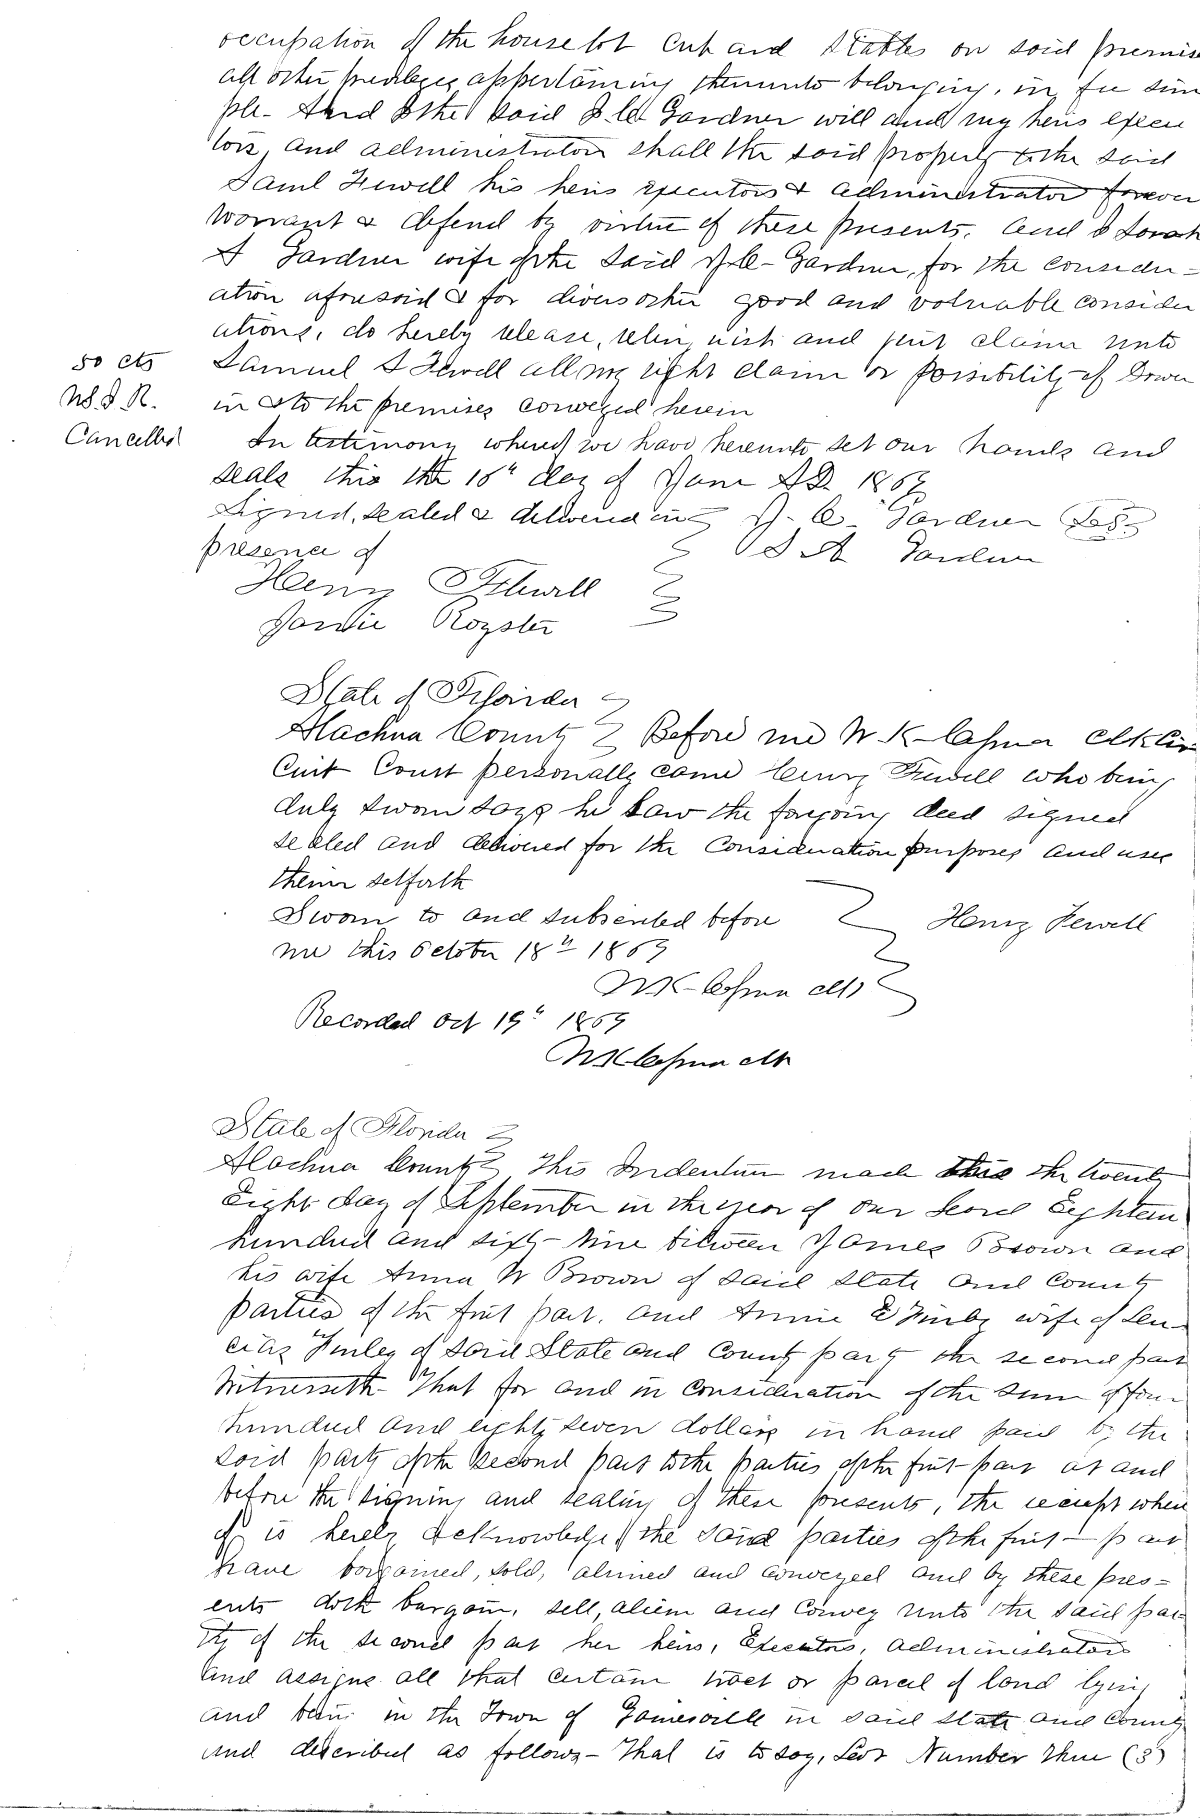 occupation of the house lot Crib and Stables on said premise
all other priviledges appertaining thereunto belonging, in fee sim
ple- And I the said J. C. Gardner will and my heirs execu
tors, and administrators shall the said property to the said
Saml Fewell his heirs executors & administrator forever
Warrant & defend by virtue of these presents. And I Sarah
A Gardner wife of the said J. C- Gardner, for the consider=
ation aforesaid & for divers other good and valuable consider
ations, do hereby release, relin, uish and quit claim unto
Samuel Fewell all my right claim or possibility of Dower
in & to the premises conveyed herein
50 cts
U.S.I.R.
Cancelled
In testimony whereof we have hereunto set our hands and
seals this the 16th day of June AD. 1869
Signed, sealed & delivered in J. C. Gardner
presence of S A Gardner
Henry Fewell
Royster
State of Florida
Alachua County Before me W. K- Cessna Clk Cir
Cuit Court personally came Henry Fewell who being
duly sworn says he saw the forgoing deed signed
sealed and delivered for the Consideration purposes and uses
therein set forth
Sworn to and subscribed before Henry Fewell
me this October 18th 1869
W K- Cessna Clk
Recorded Oct 19th 1869
W K Cessna Clk
State of Florida
Alachua County This Indenture made this the twenty
Eight day of September in the year of our Lord Eighteen
hundred and sixty-Nine between James Brown and
his wife Anna W Brown of said State and County
parties of the first part. and Annie E Finley wife of Lu=
cius Finley of said State and County party the second part
Witnesseth- That for and in Consideration of the sum of four
hundred and eighty seven dollars in hand paid by the
said party of the second part to the parties of the first-part at and
before the signing and sealing of these presents, the receipt where
of is hereby acknowledge, the said parties of the first- part
have bargained, sold, aliened and conveyed and by these pres=
ents doth bargain, sell, alien and Convey unto the said par
ty of the second part her heirs, Executors, administrators
and assigns all that certain tract or parcel of land lying
and being in the Town of Gainesville in said State and County
and described as follows- That is to say, Lot Number Three (3)